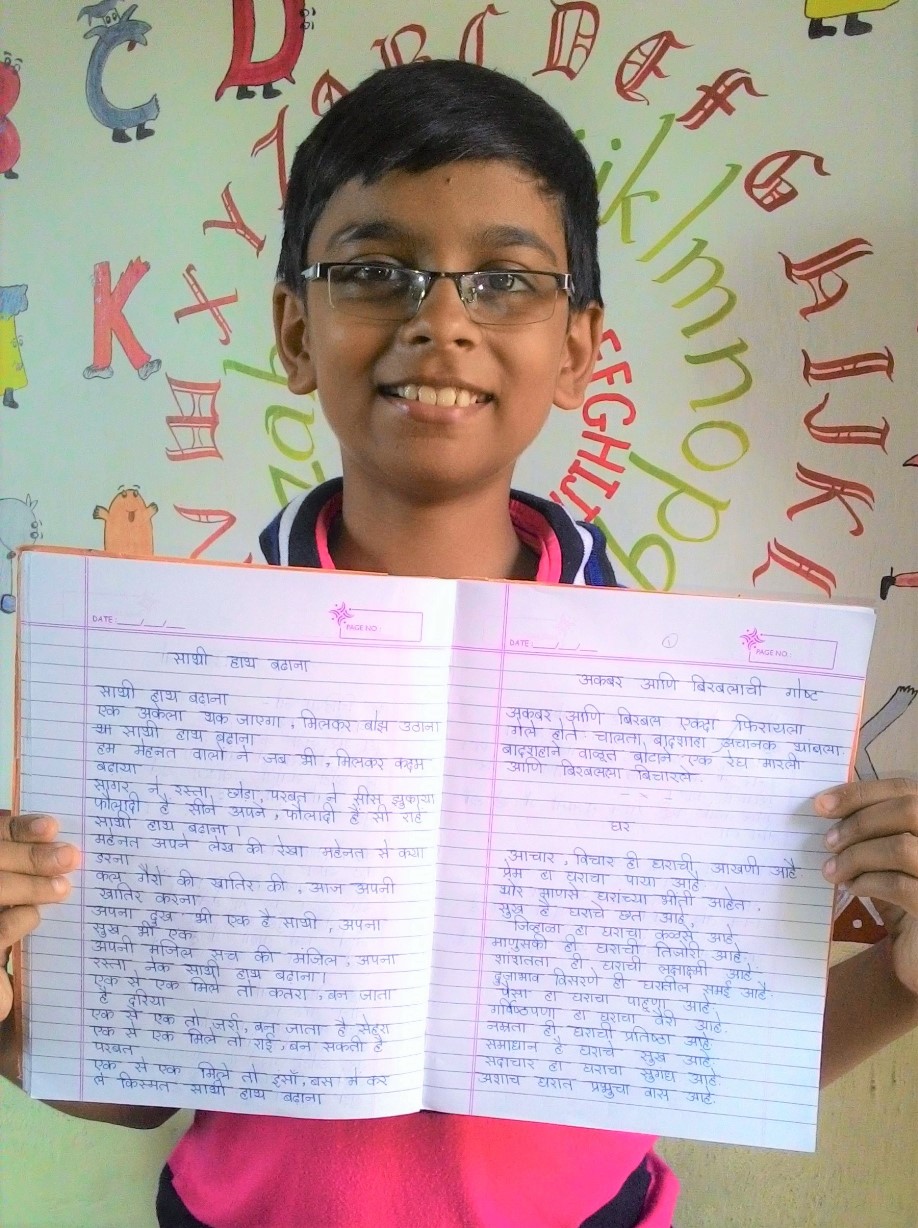 B
C
D
K
A B C D E F G H I J K L
X Y Z
i j k l m n o p q
z a b
E F G H I J
DATE:___/___/___
PAGE NO.:
साथी हाथ बढाना
साथी हाथ बढाना
एक अकेला थक जाएगा, मिलकर बोझ उठाना
साथी हाथ बढाना
हम मेहनत वालो ने जब भी, मिलकर कदम
बढाया
सागर ने, रस्ता छोडा, परबत ने सीस झुकाया
फौलादी है सीने अपने, फौलादी है सी राहे
साथी हाथ बढाना।
महेनत अपने लेख की रेखा महेनत से क्या
डरना
कल गैरो की खातिर की, आज अपनी
खातिर करना
अपना दुख भी एक है साथी, अपना
सुख भी एक
अपनी मंजिल सच की मंजिल, अपना
रस्ता नेक साथी हाथ बढाना।
एक से एक मिले तो कतरा, बन जाता
है दरिया
एक से एक तो जर्रा, बन जाता है सेहरा
एक से एक मिले तो राई, बन सकती है
परबत
एक से एक मिले तो इसाँ, बस मे कर
ले किस्मत साथी हाथ बढाना
DATE:___/___/___
1
PAGE NO.:
अकबर आणि बिरबलाची गोष्ट
अकबर आणि बिरबल एकदा फिरायला
गेले होते चालता, बादशाहा अचानक थांबला.
बादशहाने वाळूत बोटाने एक रेघ मारली
आणि बिरबलला विचारले
घर
आचार, विचार ही घराची आखणी आहे
प्रेम हा घराचा पाया आहे
थोर माणसे घरांच्या भीती आहेत.
सुख हे घराचे छत आहे.
जिव्हाळा हा घराचा कळस आहे
माणुसकी ही घराची तिजोरी आहे.
शांतता ही घराची लक्ष्मी आहे
दुजाभाव विसरणे ही घरातील समई आहे.
पैसा हा घराचा पाहूणा आहे.
गर्विष्ठपणा हा घराचा वैरी आहे.
नम्रता ही घराची प्रतिष्ठा आहे
समाधान हे घराचे सुख आहे.
सदाचार हा घराचा सुगंध आहे.
अशाच घरात प्रभुचा वास आहे.